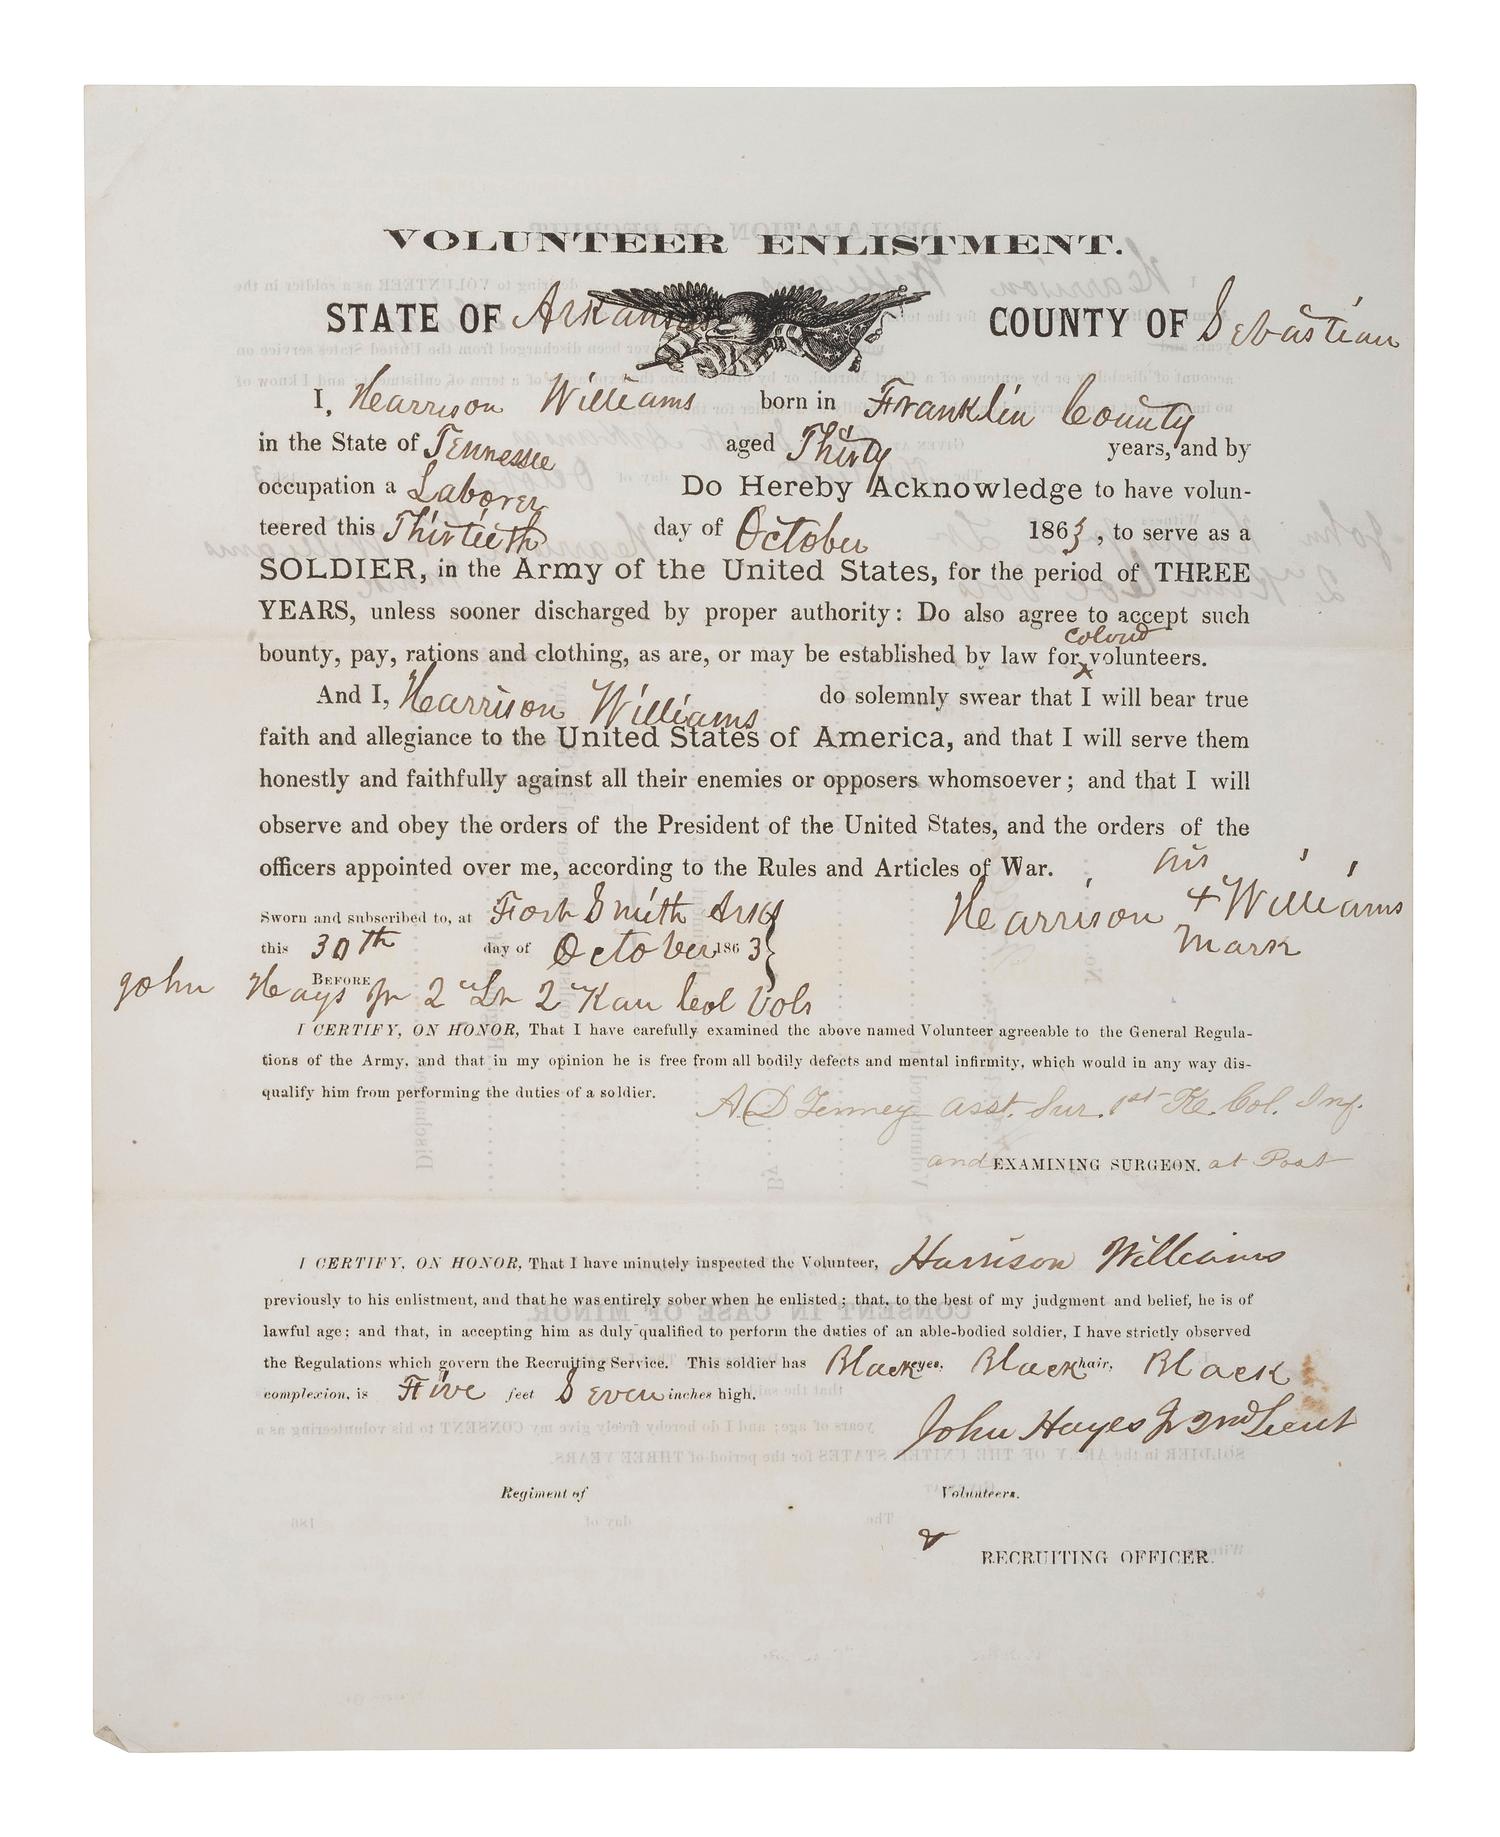 VOLUNTEER ENLISTMENT.
STATE OF Arkansas COUNTY OF Sebastian
I, Harrison Williams born in Franklin County
in the State of Tennessee aged Thirty years, and by
occupation a Laborer Do Hereby Acknowledge to have volun-
teered this Thirtieth day of October 1863, to serve as a
SOLDIER, in the Army of the United States, for the period of THREE
YEARS, unless sooner discharged by proper authority: Do also agree to accept such
bounty, pay, rations and clothing, as are, or may be established by law for colord volunteers.
And I, Harrison Williams do solemnly swear that I will bear true
faith and allegiance to the United States of America, and that I will serve them
honestly and faithfully against all their enemies or opposers whomsoever; and that I will
observe and obey the orders of the President of the United States, and the orders of the
officers appointed over me, according to the Rules and Articles of War.
his
Harrison + Williams
mark
Sworn and subscribed to, at Fort Smith Ark
this 30th day of October 1863
BEFORE
John Hays Jr 2" Lt 2" Kan Col Vols
I CERTIFY, ON HONOR, That I have carefully examined the above named Volunteer agreeable to the General Regula-
tions of the Army, and that in my opinion he is free from all bodily defects and mental infirmity, which would in any way dis-
qualify him from performing the duties of a soldier.
A. D Tenney asst. Sur. 1st Ks. Col. Inf.
and EXAMINING SURGEON. at Post
I CERTIFY, ON HONOR, That I have minutely inspected the Volunteer, Harrison Williams
previously to his enlistment, and that he was entirely sober when he enlisted; that, to the best of my judgment and belief, he is of
lawful age; and that, in accepting him as duly qualified to perform the duties of an able-bodied soldier, I have strictly observed
the Regulations which govern the Recruiting Service. This soldier has Black eyes, Black hair, Black
complexion, is Five feet Seven inches high.
John Hayes Jr 2nd Lieut
Regiment of Volunteers.
RECRUITING OFFICER.